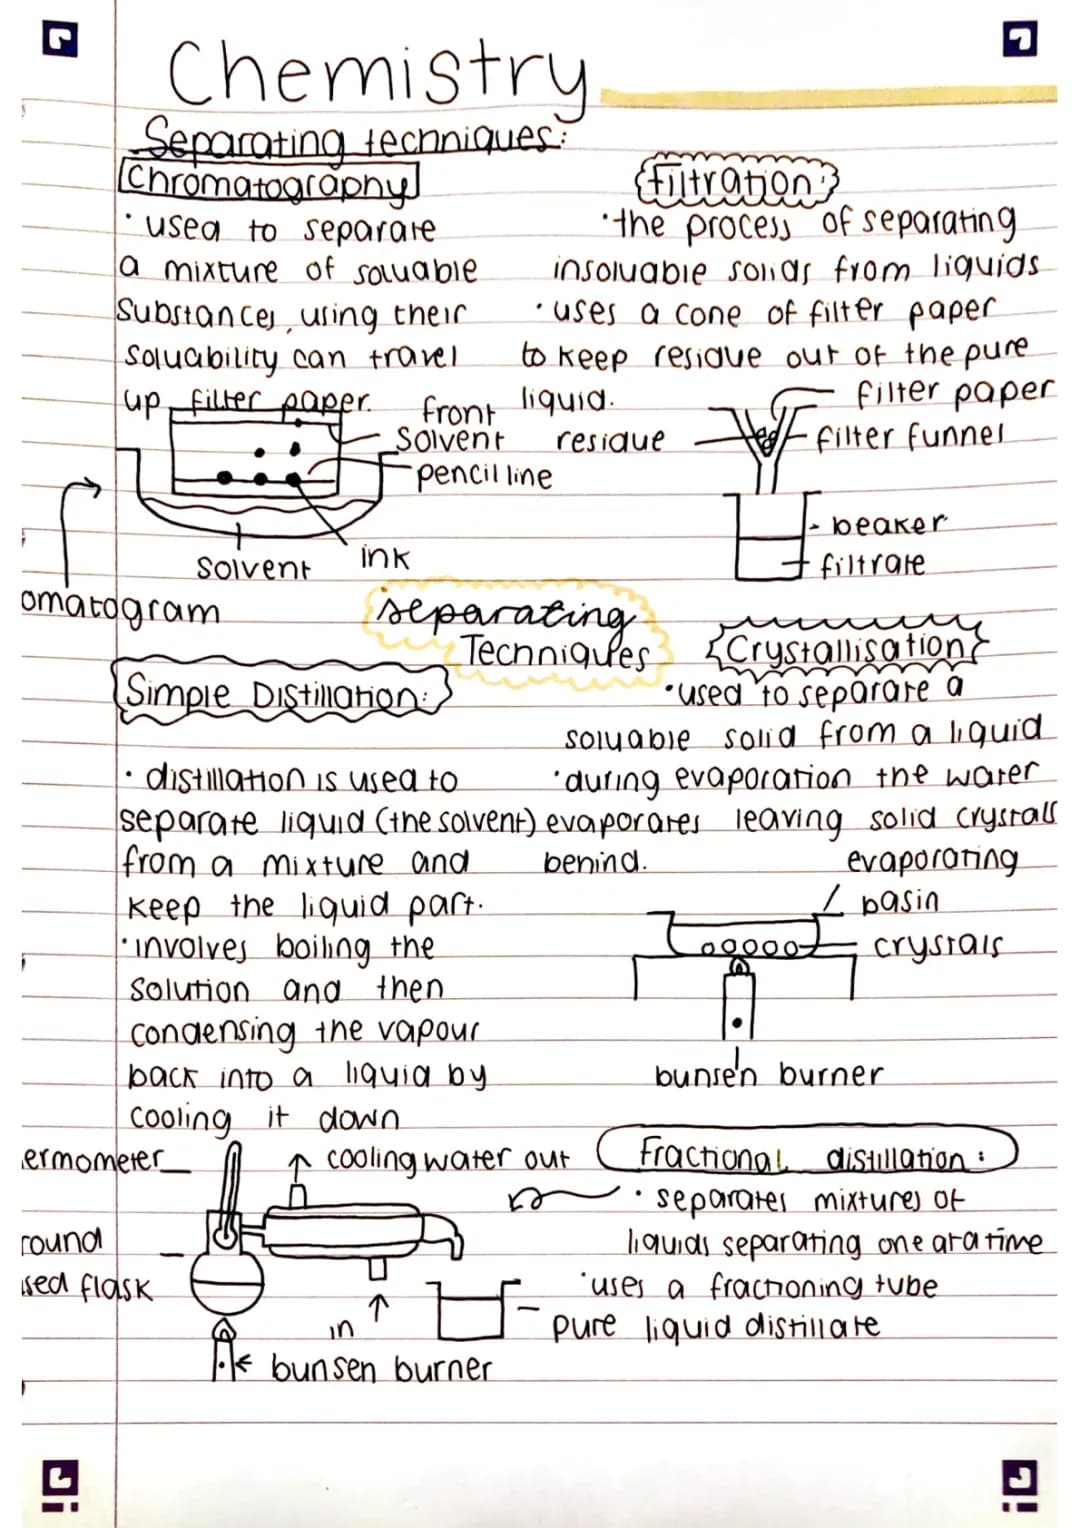 Chemistry
Separating techniques:
Chromatography
· used to separate
a mixture of soluable
Substances, using their
Soluability can travel
up filter paper.
front
Solvent
pencil line
Solvent
ink
omatogram
Filtration:
· the process of separating
insoluable solids from liquids
· uses a cone of filter paper
to keep residue out of the pure
liquid.
filter paper
residue
filter funnel
- beaker
filtrate
separating
Techniques
Crystallisation
· used to separate a
soluable solid from a liquid
· during evaporation the water
evaporates leaving solid crystals
behind.
evaporating
basin
crystals
bunsen burner
Simple Distillation:
· distillation is used to
separate liquid (the solvent)
from a mixture and
keep the liquid part.
· involves boiling the
solution and then
condensing the vapour
back into a liquid by
cooling it down
ermometer
cooling water out
round
sed flask
in
bunsen burner
pure liquid distillate
Fractional distillation:
· separates mixtures of
liquids separating one at a time
· uses a fractioning tube